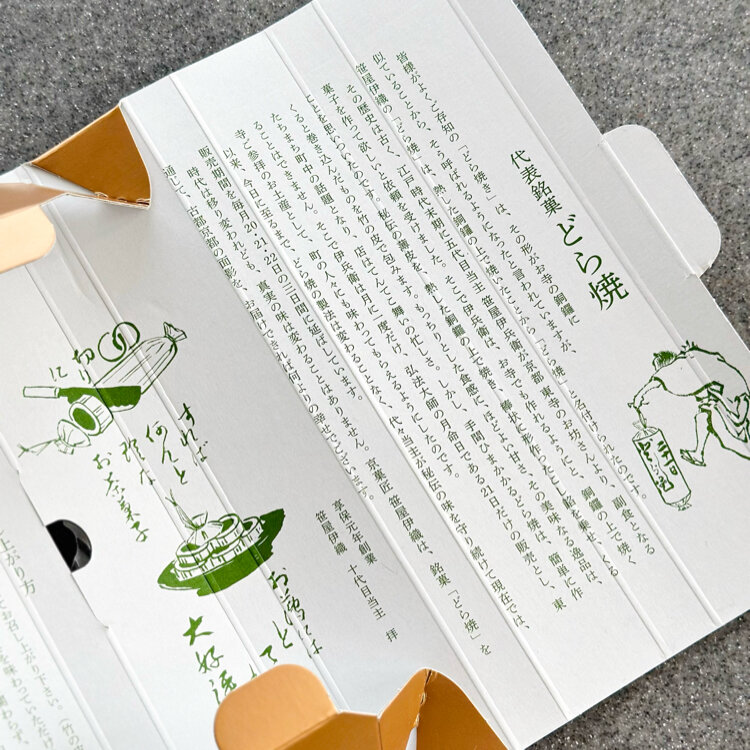 代表銘菓 どら焼
皆様がよくご存知の「どら焼き」は、その形がお寺の銅鑼に
似ていることから、そう呼ばれるようになったと言われていますが、
笹屋伊織の「どら焼」は、熱した銅鑼の上で焼いたことから「どら焼」と名付けられたのです。
その歴史は古く、江戸時代末期に五代目当主 笹屋伊兵衛が京都・東寺のお坊さんより、副食となる
菓子を作って欲しいと依頼を受けました。そこで伊兵衛は、お寺でも作れるようにと、銅鑼の上で焼く
ことを思いついたのです。秘伝の薄皮を、熱した銅鑼の上で焼き、棒状に形作ったこし餡を乗せ、くる
くると巻き込んだものを竹の皮で包みます。もっちりとした食感に、ほどよい甘さ、その美味なる逸品は、
たちまち町中の話題となり、店はてんてこ舞いの忙しさ。しかし、手間ひまかかるどら焼は、簡単に作
ることはできません。そこで伊兵衛は月に一度だけ、弘法大師の月命日である21日だけの販売とし、東
寺ご参拝のお土産として、町の人々にも味わってもらえるようにしたのです。
以来、今日に至るまで、どら焼の製法は変わることなく、代々当主が秘伝の味を守り続けて現在では、
販売期間を毎月20・21・22日の三日間に延ばしています。
時代は移り変われども、真実の味は変わることはありません。京菓匠 笹屋伊織は、銘菓「どら焼」を
通して、古都京都の面影を、お届けできれば何よりの幸せでございます。
享保元年創業
笹屋伊織 十代目当主 拝
切り
に
すれば
何んと
お茶菓子
大好
上がり方
てお召し上がり下さい。（竹の
を味わっていただけ